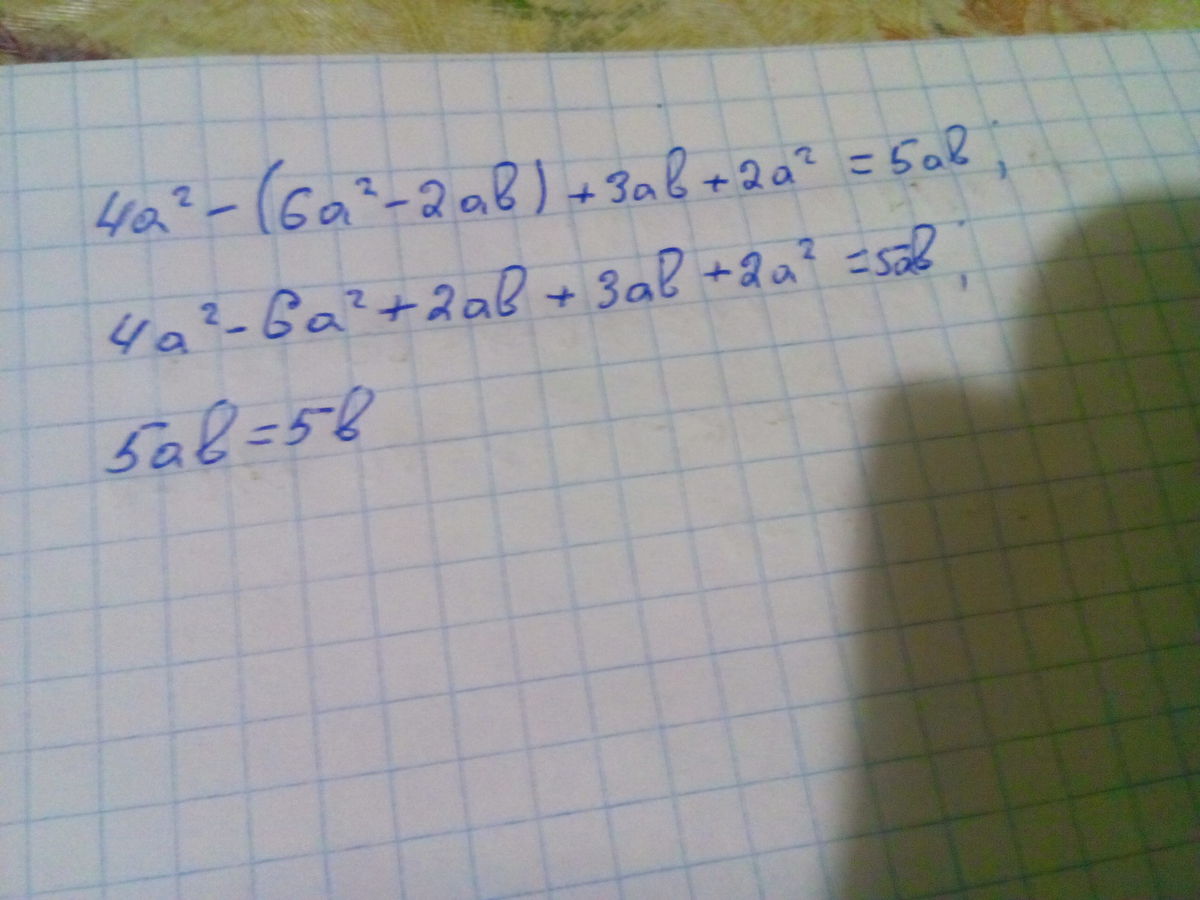 4a² - (6a² - 2ab) + 3ab + 2a² = 5ab;
4a² - 6a² + 2ab + 3ab + 2a² = 5ab;
5ab = 5b